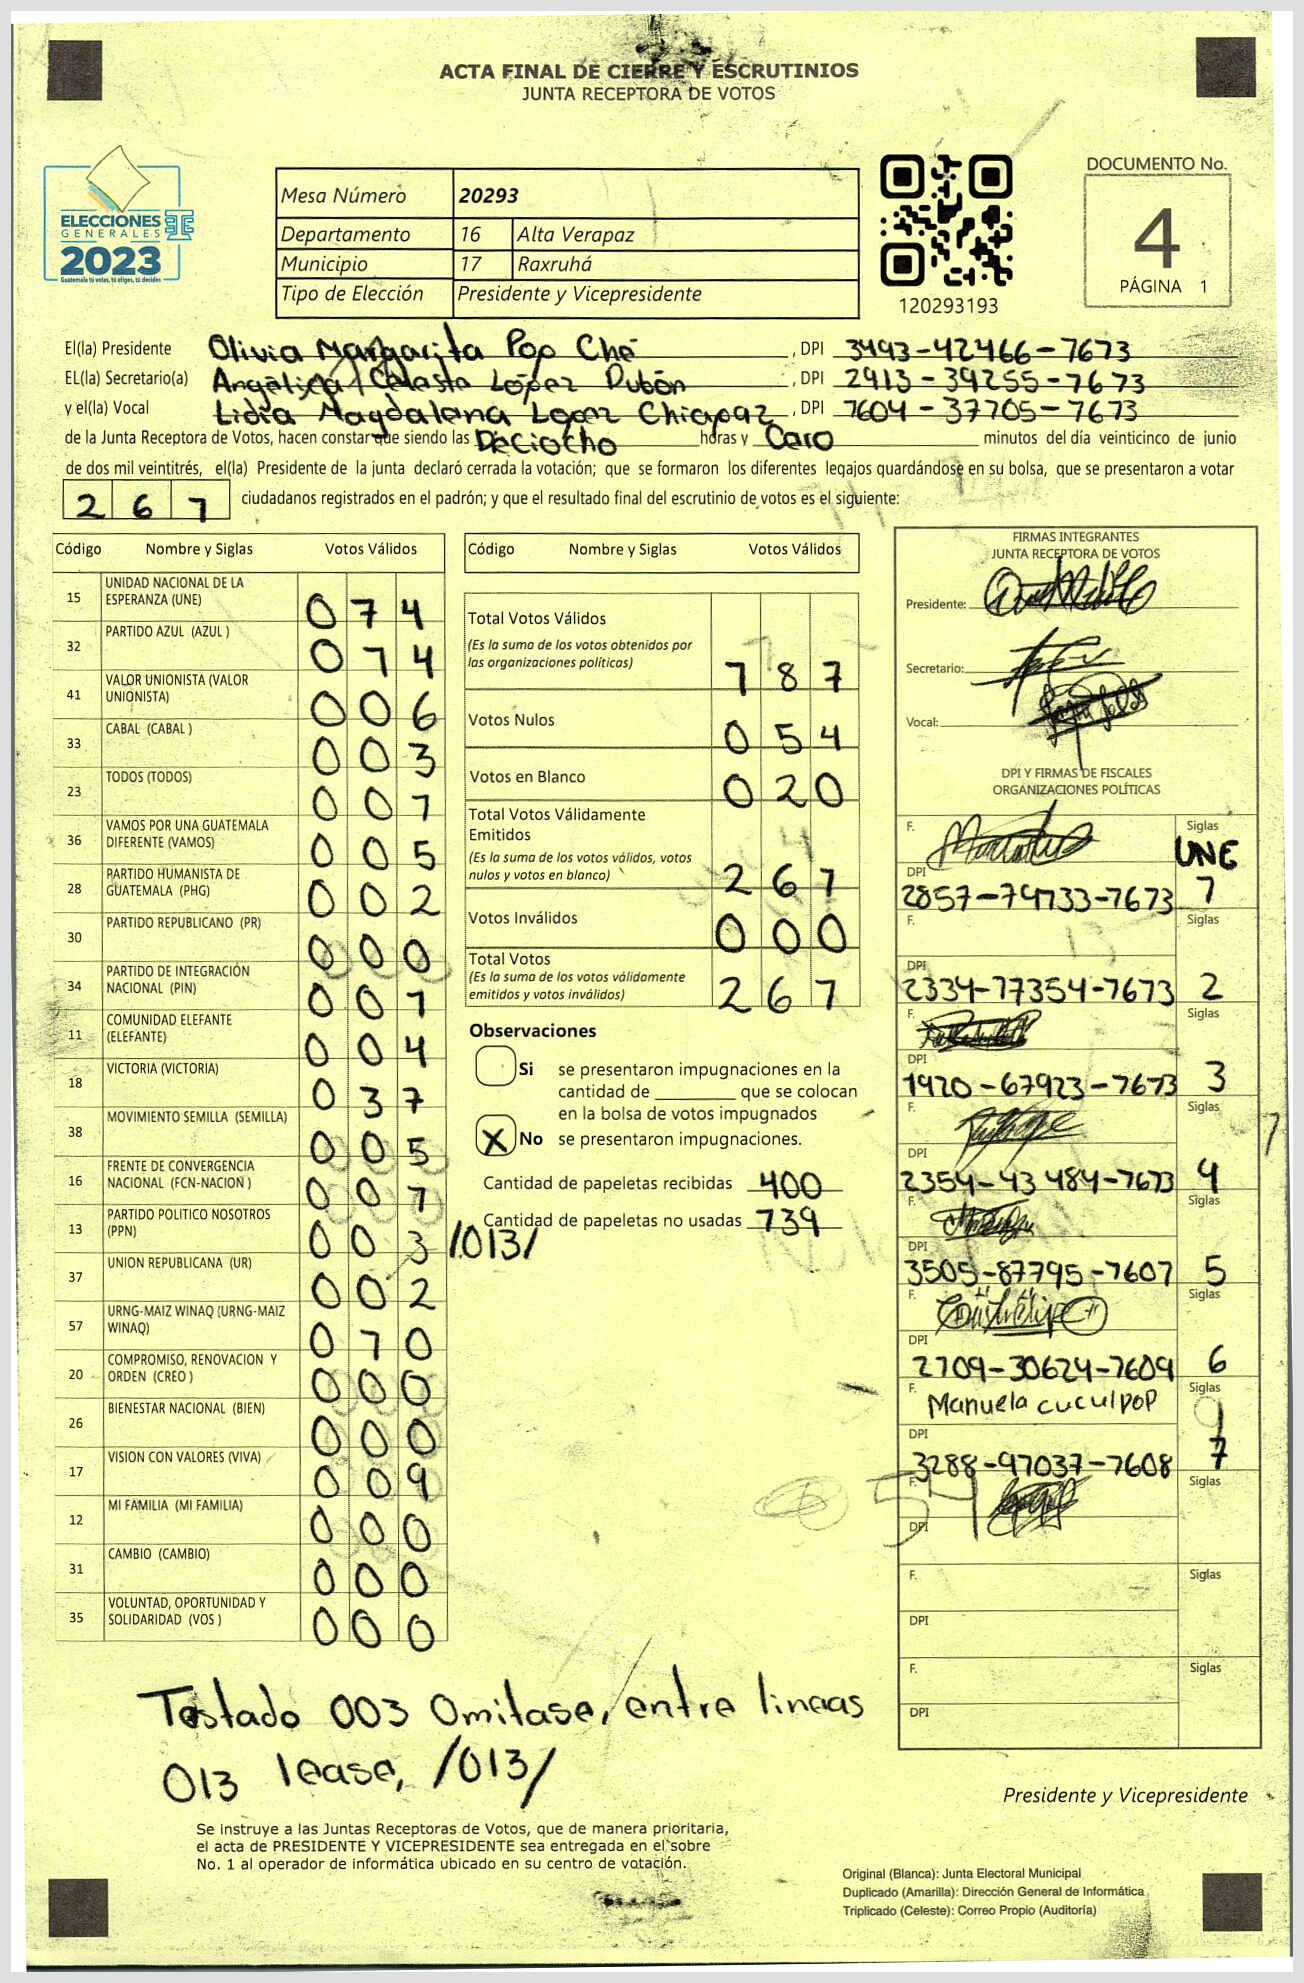 ACTA FINAL DE CIERRE Y ESCRUTINIOS
JUNTA RECEPTORA DE VOTOS
ELECCIONES
GENERALES
2023
Guatemala tú votas, tú eliges, tú decides
Mesa Número 20293
Departamento 16 Alta Verapaz
Municipio 17 Raxruhá
Tipo de Elección Presidente y Vicepresidente
120293193
DOCUMENTO No.
4
PÁGINA 1
El(la) Presidente Olivia Margarita Pop Ché, DPI 3493-42466-1613
EL(la) Secretario(a) Angélica Celeste López Dubón, DPI 2913-39255-1613
y el(la) Vocal Lidia Magdalena López Chiapaz, DPI 1604-37105-1613
de la Junta Receptora de Votos, hacen constar que siendo las Deciocho horas y Cero minutos del día veinticinco de junio
de dos mil veintitrés, el(la) Presidente de la junta declaró cerrada la votación; que se formaron los diferentes legajos guardándose en su bolsa, que se presentaron a votar
261 ciudadanos registrados en el padrón; y que el resultado final del escrutinio de votos es el siguiente:
Código Nombre y Siglas Votos Válidos
15 UNIDAD NACIONAL DE LA ESPERANZA (UNE) 074
32 PARTIDO AZUL (AZUL ) 014
41 VALOR UNIONISTA (VALOR UNIONISTA) 006
33 CABAL (CABAL ) 003
23 TODOS (TODOS) 001
36 VAMOS POR UNA GUATEMALA DIFERENTE (VAMOS) 005
28 PARTIDO HUMANISTA DE GUATEMALA (PHG) 002
30 PARTIDO REPUBLICANO (PR) 000
34 PARTIDO DE INTEGRACIÓN NACIONAL (PIN) 001
11 COMUNIDAD ELEFANTE (ELEFANTE) 004
18 VICTORIA (VICTORIA) 037
38 MOVIMIENTO SEMILLA (SEMILLA) 005
16 FRENTE DE CONVERGENCIA NACIONAL (FCN-NACION ) 001
13 PARTIDO POLITICO NOSOTROS (PPN) 003 /013/
37 UNION REPUBLICANA (UR) 002
57 URNG-MAIZ WINAQ (URNG-MAIZ WINAQ) 010
20 COMPROMISO, RENOVACION Y ORDEN (CREO ) 000
26 BIENESTAR NACIONAL (BIEN) 000
17 VISION CON VALORES (VIVA) 009
12 MI FAMILIA (MI FAMILIA) 000
31 CAMBIO (CAMBIO) 000
35 VOLUNTAD, OPORTUNIDAD Y SOLIDARIDAD (VOS ) 000
Código Nombre y Siglas Votos Válidos
Total Votos Válidos 187
(Es la suma de los votos obtenidos por
las organizaciones políticas)
Votos Nulos 054
Votos en Blanco 020
Total Votos Válidamente
Emitidos 261
(Es la suma de los votos válidos, votos
nulos y votos en blanco)
Votos Inválidos 000
Total Votos 261
(Es la suma de los votos válidamente
emitidos y votos inválidos)
Observaciones
Si se presentaron impugnaciones en la
cantidad de ________ que se colocan
en la bolsa de votos impugnados
X No se presentaron impugnaciones.
Cantidad de papeletas recibidas 400
Cantidad de papeletas no usadas 139
FIRMAS INTEGRANTES
JUNTA RECEPTORA DE VOTOS
Presidente:
Secretario:
Vocal:
DPI Y FIRMAS DE FISCALES
ORGANIZACIONES POLÍTICAS
F. Siglas UNE
DPI 2857-74133-1613 1
F. Siglas
DPI 2334-77354-1613 2
F. Siglas
DPI 1920-67923-1613 3
F. Siglas
DPI 2354-43484-1613 4
F. Siglas
DPI 3505-87795-1607 5
F. Siglas
DPI 2709-30624-1609 6
F. Manuela cuculpop Siglas
DPI 3288-97037-1608 7
F. Siglas
DPI
F. Siglas
DPI
F. Siglas
DPI
54
Testado 003 Omitase, entre lineas
013 lease, /013/
Presidente y Vicepresidente
Se instruye a las Juntas Receptoras de Votos, que de manera prioritaria,
el acta de PRESIDENTE Y VICEPRESIDENTE sea entregada en el sobre
No. 1 al operador de informática ubicado en su centro de votación.
Original (Blanca): Junta Electoral Municipal
Duplicado (Amarilla): Dirección General de Informática
Triplicado (Celeste): Correo Propio (Auditoría)